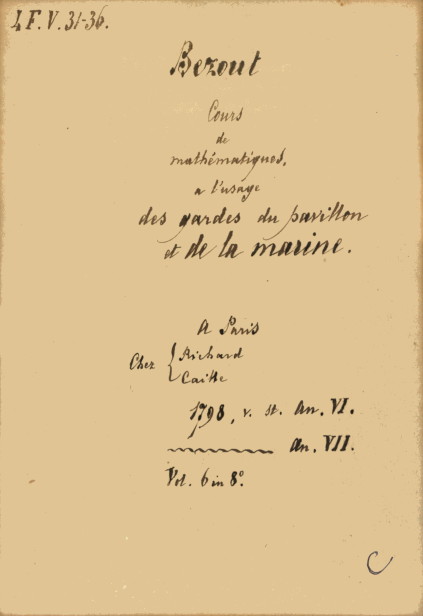 4 F. V. 31-36.
Bezout
Cours
de
mathématiques,
a l'usage
des gardes du pavillon
et de la marine.
A Paris
Chez { Richard
Caille
1798, v. st. An. VI.
An. VII.
Vol. 6 in 8º.
C